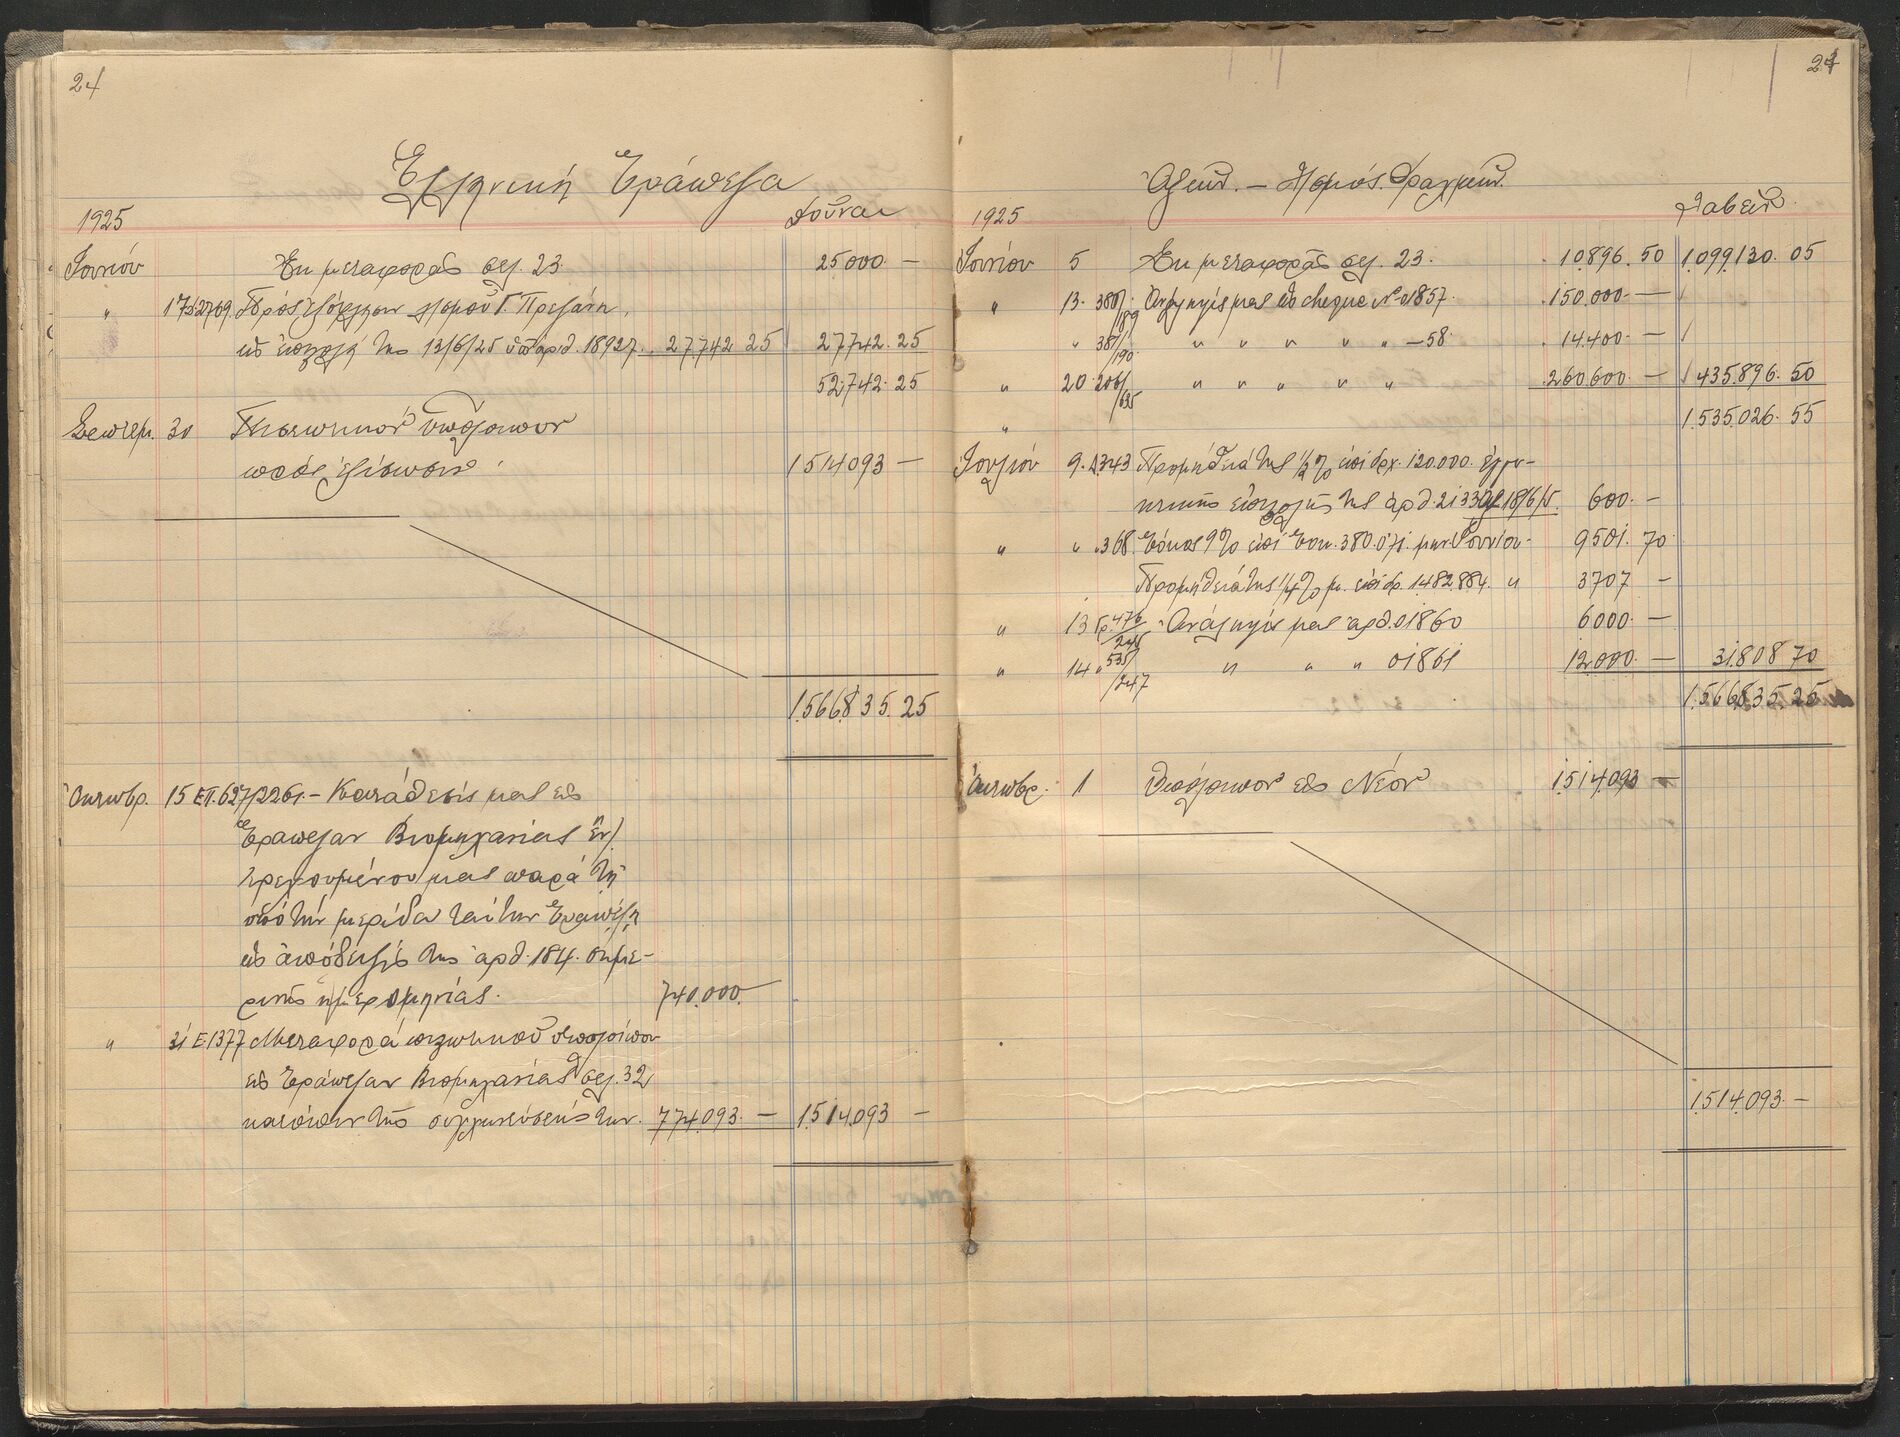 24
Ἑλληνική Τράπεζα
1925
Δοῦναι
Ἰουνίου Ἐκ μεταφορᾶς σελ. 23. 25.000 —
" 17 Πρὸς ἐξόφλησιν λ]σμοῦ Γ. Πρεζάνη
ὡς ἐπιστολή της 13/6/25 ὑπ' ἀριθ. 18927. 27742 25 27742. 25
52.742. 25
Σεπτεμ. 30 Πιστωτικόν ὑπόλοιπον
πρὸς ἐξίσωσιν. 1514093 —
1.566.835. 25
Ὀκτωβρ. 15 ΕΤ. 627/2261. — Κατάθεσίς μας εἰς
Τράπεζαν Βιομηχανίας
τρεχουμένου μας παρά τῇ
ὑπό τήν μερίδα ταύτην Τραπέζῃ
ὡς ἀπόδειξίς της ἀρθ. 184. σημε-
ρινῆς ἡμερομηνίας. 740.000.
" 31 Ε1377 Μεταφορά πιστωτικοῦ ὑπολοίπου
εἰς Τράπεζαν Βιομηχανίας σελ. 32
κατόπιν τῆς συγχωνεύσεώς των. 774.093. — 1.514.093 —
24
Ἀθηνῶν. — Λ]σμός. Δραχμῶν.
1925
Λαβεῖν.
Ἰουνίου 5 Ἐκ μεταφορᾶς σελ. 23. 10.896. 50 1.099.130. 05
" 13. 380/189 Ἀνάληψίς μας ὡς cheque Νο 01857. 150.000. —
" 381/190 " " " " " —58 14.400. —
" 20 206/635 " " " " " 260.600. — 435.896. 50
" 1.535.026. 55
Ἰουλίου 9. 2343 Προμήθειά της 1/2 % ἐπί δρχ. 120.000. ἐγγυ-
ητικῆς ἐπιστολῆς της ἀρθ. 21330/18/6/25. 600. —
" " 368. Τόκος 9% ἐπί Τοκ. 380.071. μην. Ἰουνίου 9501. 70
Προμήθειά της 1/4 % μ. ἐπί δρ. 1.482.884. " 3707 —
" 13 Γρ. 476/246 Ἀνάληψίς μας ἀρθ. 01860 6000. —
" 14 " 535/247 " " " 01861 12.000. — 31.808 70
1.566.835. 25
Ὀκτωβρ. 1 Ὑπόλοιπον εἰς Νέον 1.514.093 —
1.514.093. —